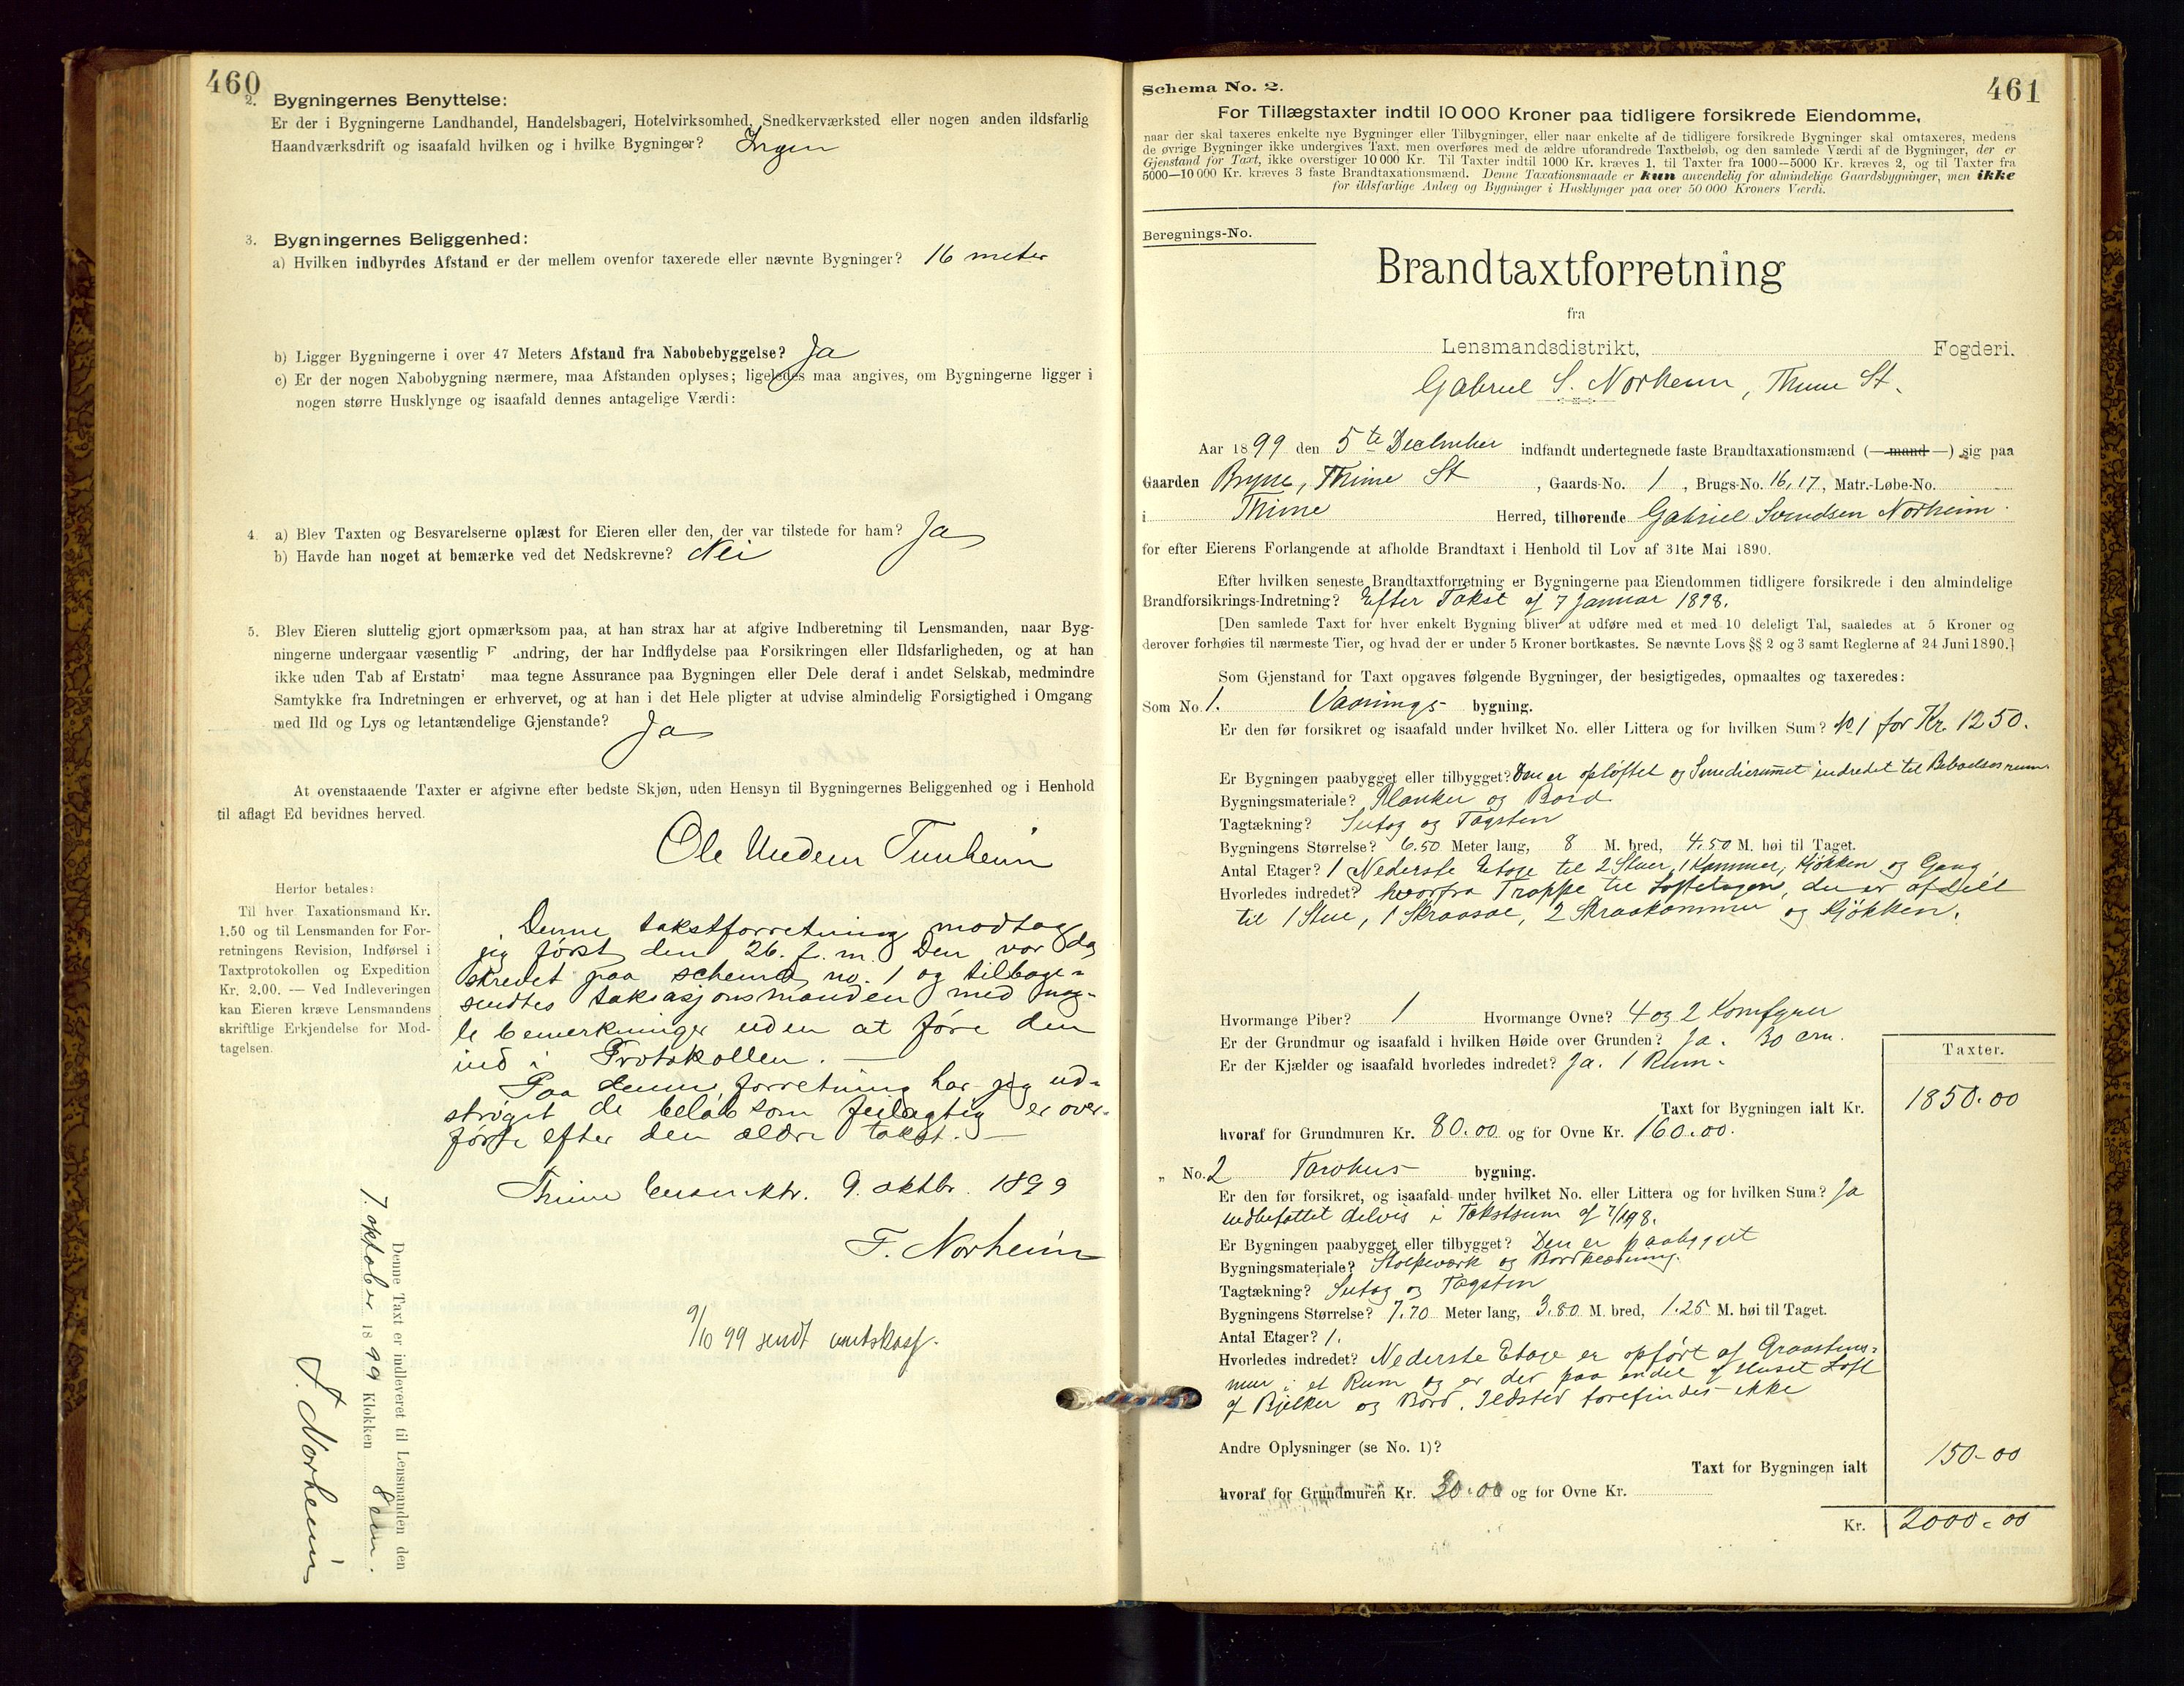 460
2. Bygningernes Benyttelse:
Er der i Bygningerne Landhandel, Handelsbageri, Hotelvirksomhed, Snedkerværksted eller nogen anden ildsfarlig
Haandværksdrift og isaafald hvilken og i hvilke Bygninger? Ingen
3. Bygningernes Beliggenhed:
a) Hvilken indbyrdes Afstand er der mellem ovenfor taxerede eller nævnte Bygninger? 16 meter
b) Ligger Bygningerne i over 47 Meters Afstand fra Nabobebyggelse? Ja
c) Er der nogen Nabobygning nærmere, maa Afstanden oplyses; ligeledes maa angives, om Bygningerne ligger i
nogen større Husklynge og isaafald dennes antagelige Værdi:
4. a) Blev Taxten og Besvarelserne oplæst for Eieren eller den, der var tilstede for ham? Ja
b) Havde han noget at bemærke ved det Nedskrevne? Nei
5. Blev Eieren sluttelig gjort opmærksom paa, at han strax har at afgive Indberetning til Lensmanden, naar Byg-
ningerne undergaar væsentlig F andring, der har Indflydelse paa Forsikringen eller Ildsfarligheden, og at han
ikke uden Tab af Erstatni maa tegne Assurance paa Bygningen eller Dele deraf i andet Selskab, medmindre
Samtykke fra Indretningen er erhvervet, og at han i det Hele pligter at udvise almindelig Forsigtighed i Omgang
med Ild og Lys og letantændelige Gjenstande? Ja
At ovenstaaende Taxter er afgivne efter bedste Skjøn, uden Hensyn til Bygningernes Beliggenhed og i Henhold
til aflagt Ed bevidnes herved.
Ole Undem Tunheim
Herfor betales:
Til hver Taxationsmand Kr.
1.50 og til Lensmanden for For-
retningens Revision, Indførsel i
Taxtprotokollen og Expedition
Kr. 2.00. — Ved Indleveringen
kan Eieren kræve Lensmandens
skriftlige Erkjendelse for Mod-
tagelsen.
Denne takstforretning modtog
jeg først den 26. f. m. Den var da
skrevet paa schema no. 1 og tilbage-
sendtes taksasjonsmanden med nog-
le bemerkninger uden at føre den
ind i Protokollen. —
Paa denne forretning har jeg ud-
strøget de beløb som feilagtig er over-
førte efter den ældre takst. —
Thime 9. oktbr. 1899
T. Norheim
9/10 99 sendt amtskass.
Denne Taxt er indleveret til Lensmanden den
7. oktober 1899 Klokken 8 em.
T. Norheim
461
Schema No. 2.
For Tillægstaxter indtil 10 000 Kroner paa tidligere forsikrede Eiendomme,
naar der skal taxeres enkelte nye Bygninger eller Tilbygninger, eller naar enkelte af de tidligere forsikrede Bygninger skal omtaxeres, medens
de øvrige Bygninger ikke undergives Taxt, men overføres med de ældre uforandrede Taxtbeløb, og den samlede Værdi af de Bygninger, der er
Gjenstand for Taxt, ikke overstiger 10 000 Kr. Til Taxter indtil 1000 Kr. kræves 1, til Taxter fra 1000—5000 Kr. kræves 2, og til Taxter fra
5000—10 000 Kr. kræves 3 faste Brandtaxationsmænd. Denne Taxationsmaade er kun anvendelig for almindelige Gaardsbygninger, men ikke
for ildsfarlige Anlæg og Bygninger i Husklynger paa over 50 000 Kroners Værdi.
Beregnings-No.
Brandtaxtforretning
fra
Lensmandsdistrikt, Fogderi.
Gabriel S. Norheim, Thime St.
Aar 1899 den 5te December indfandt undertegnede faste Brandtaxationsmænd (— mand —) sig paa
Gaarden Bryne, Thime St, Gaards-No. 1, Brugs-No. 16, 17, Matr.-Løbe-No.
i Thime Herred, tilhørende Gabriel Svendsen Norheim
for efter Eierens Forlangende at afholde Brandtaxt i Henhold til Lov af 31te Mai 1890.
Efter hvilken seneste Brandtaxtforretning er Bygningerne paa Eiendommen tidligere forsikrede i den almindelige
Brandforsikrings-Indretning? Efter Takst af 7 Januar 1898.
[Den samlede Taxt for hver enkelt Bygning bliver at udføre med et med 10 deleligt Tal, saaledes at 5 Kroner og
derover forhøies til nærmeste Tier, og hvad der er under 5 Kroner bortkastes. Se nævnte Lovs §§ 2 og 3 samt Reglerne af 24 Juni 1890.]
Som Gjenstand for Taxt opgaves følgende Bygninger, der besigtigedes, opmaaltes og taxeredes:
Som No. 1. Vaanings- bygning.
Er den før forsikret og isaafald under hvilket No. eller Littera og for hvilken Sum? No 1 for Kr. 1250.
Er Bygningen paabygget eller tilbygget? Den er opløftet og Smedierummet indredet til Beboelsesrum
Bygningsmateriale? Planker og Bord
Tagtækning? Sutag og Tagsten
Bygningens Størrelse? 6.50 Meter lang, 8 M. bred, 4.50 M. høi til Taget.
Antal Etager? 1 Nederste Etage til 2 Stuer, 1 Kammer, Kjøkken og Gang,
Hvorledes indredet? hvorfra Trappe til Loftetagen, der er afdelt
til 1 Stue, 1 Skraasal, 2 Skraakammer og Kjøkken.
Hvormange Piber? 1 Hvormange Ovne? 4 og 2 Komfyrer
Er der Grundmur og isaafald i hvilken Høide over Grunden? Ja. 30 cm.
Er der Kjælder og isaafald hvorledes indredet? Ja. 1 Rum.
Taxter.
Taxt for Bygningen ialt Kr. 1850.00
hvoraf for Grundmuren Kr. 80.00 og for Ovne Kr. 160.00.
„ No. 2 Torvhus bygning.
Er den før forsikret, og isaafald under hvilket No. eller Littera og for hvilken Sum? Ja
indbefattet delvis i Takstsum af 7/1 98.
Er Bygningen paabygget eller tilbygget? Den er paabygget
Bygningsmateriale? Stolpeværk og Bordklædning.
Tagtækning? Sutag og Tagsten
Bygningens Størrelse? 7.70 Meter lang, 3.80 M. bred, 1.25 M. høi til Taget.
Antal Etager? 1.
Hvorledes indredet? Nederste Etage er opført af Graastens-
mur i et Rum og er der paa endel af Huset Loft
af Bjelker og Bord. Ildsted forefindes ikke
Andre Oplysninger (se No. 1)?
Taxt for Bygningen ialt 150-00
hvoraf for Grundmuren Kr. 30.00 og for Ovne Kr.
Kr. 2000.00